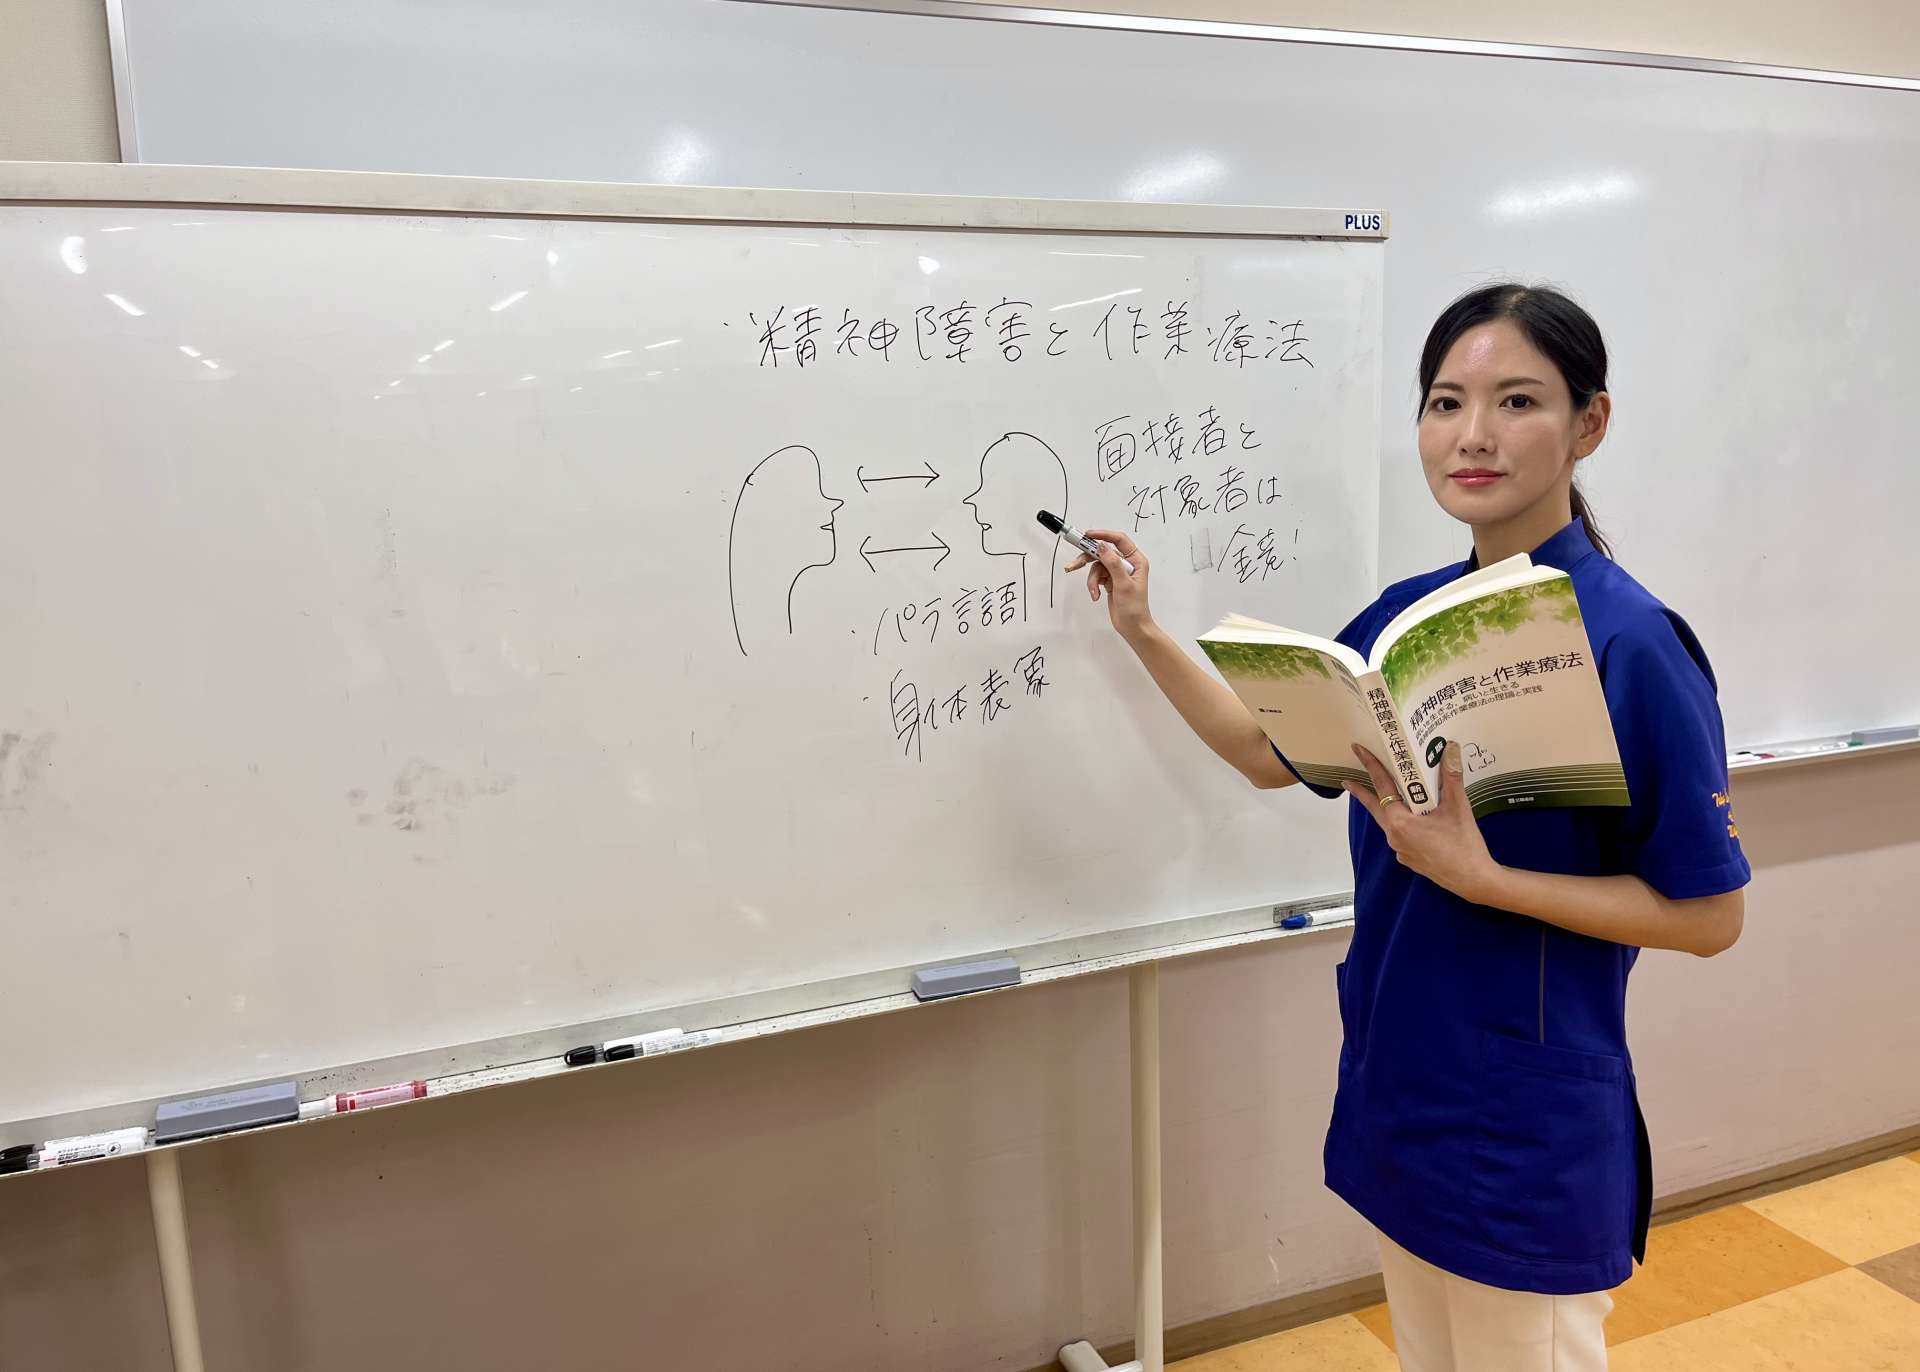 PLUS
・精神障害と作業療法
面接者と
対象者は
鏡!
・パラ言語
・身体表象
精神障害と作業療法
病いを生きる、病いと生きる
精神認知系作業療法の理論と実践
新版
三輪書店
精神障害と作業療法
新版
三輪書店